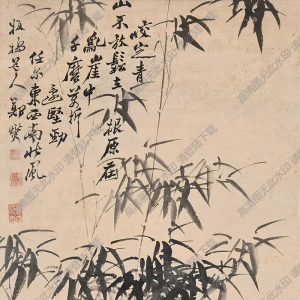 咬定青
山不放鬆立根原在
亂崖中
千磨萬折
還堅勁
任尔東西南北風
板橋道人鄭燮